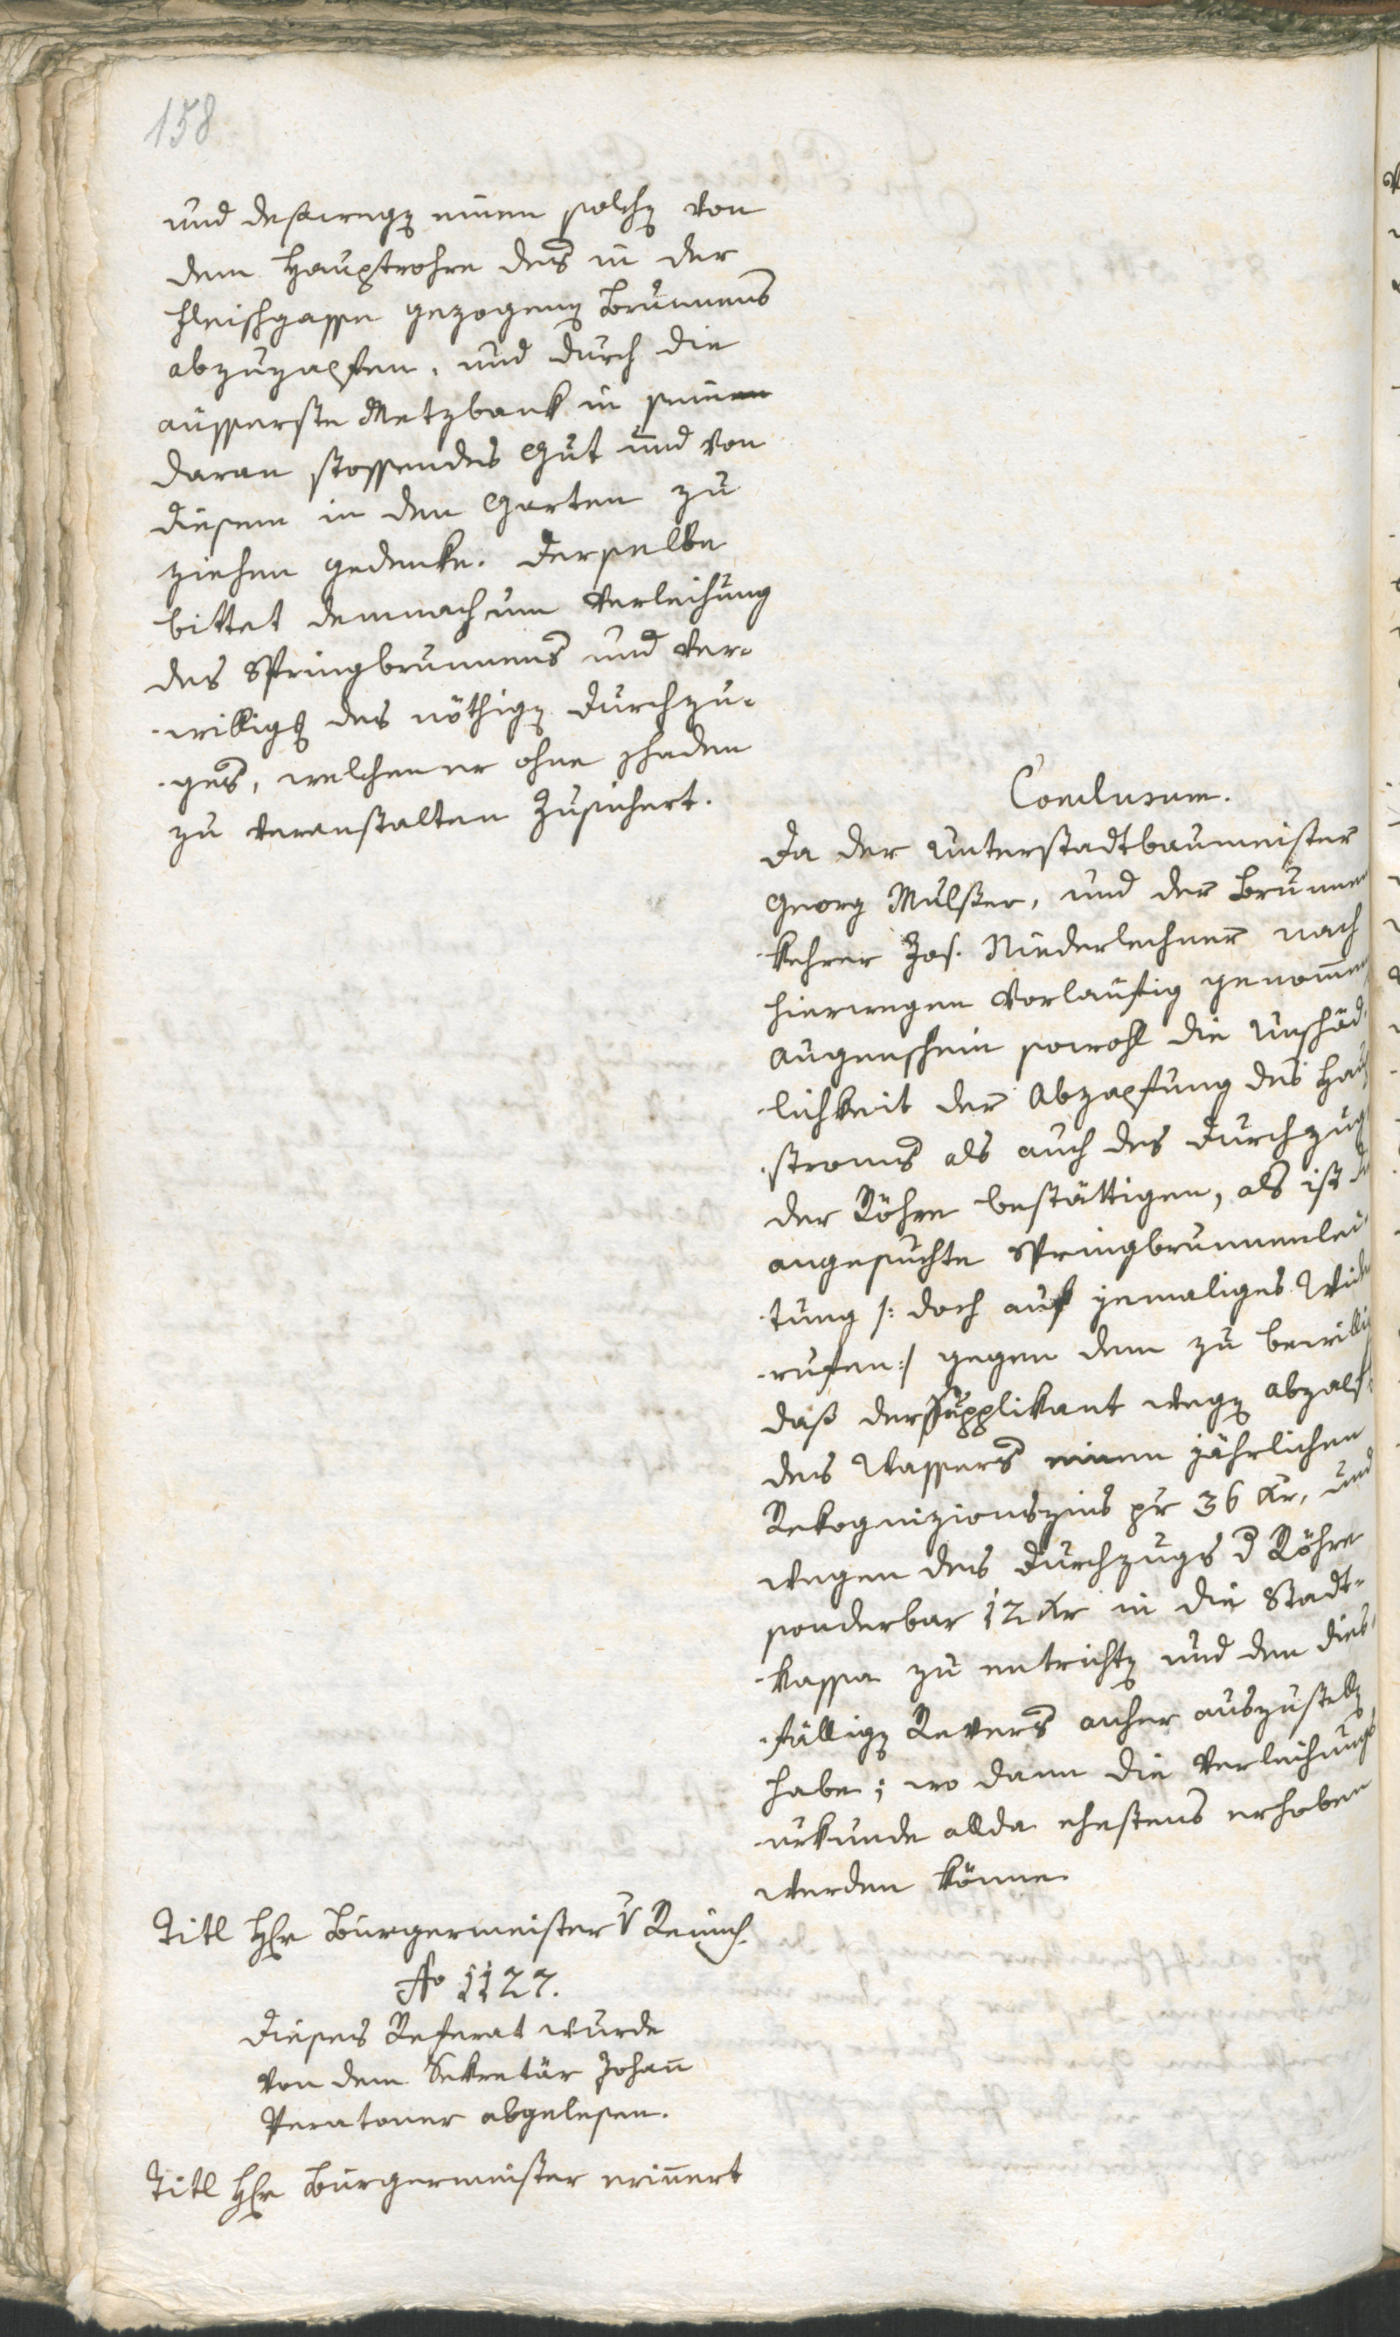 158
und desswegen einen solchen von
dem Hauptrohre des in der
Fleischgasse gezogenen Brunnens
abzuzapfen, und durch die
äusserste Metzbank in seinen
daran stossendes Gut und von
diesem in den Garten zu
ziehen gedenke. Derselbe
bittet demnach um Verleihung
des Springbrunnens und Ver-
willigg des nöthigen Durchzu-
ges, welchen er ohne Schaden
zu veranstalten zusichert.
Conclusum.
Da der Unterstadtbaumeister
Georg Mulsser, und der Brunnen
kehrer Jos. Niederlechner nach
hierwegen vorläufig genommen
Augenschein sowohl die Unschäd-
lichkeit der Abzapfung des Haupt
stroms als auch des Durchzugs
der Röhre bestättigen, als ist die
angesuchte Springbrunnenlei-
tung /: doch auf jemaliges Wider
rufen :/ gegen dem zu bewilligen
daß der Supplikant wegen Abzapf
des Wassers einen jährlichen
Rekognizionszins pr 36 Kr, und
wegen des Durchzugs d Röhre
sonderbar 12 Kr in die Stadt-
kassa zu entrichten und den dies-
fälligen Revers anher auszustellen
habe; wo dann die Verleihungs
urkunde allda ehestens erhoben
werden könne.
Titl Hr Bürgermeister v
No 1127.
Dieses Referat wurde
von dem Sekretär Johann
Peratoner abgelesen.
Titl Hr Bürgermeister erinnert